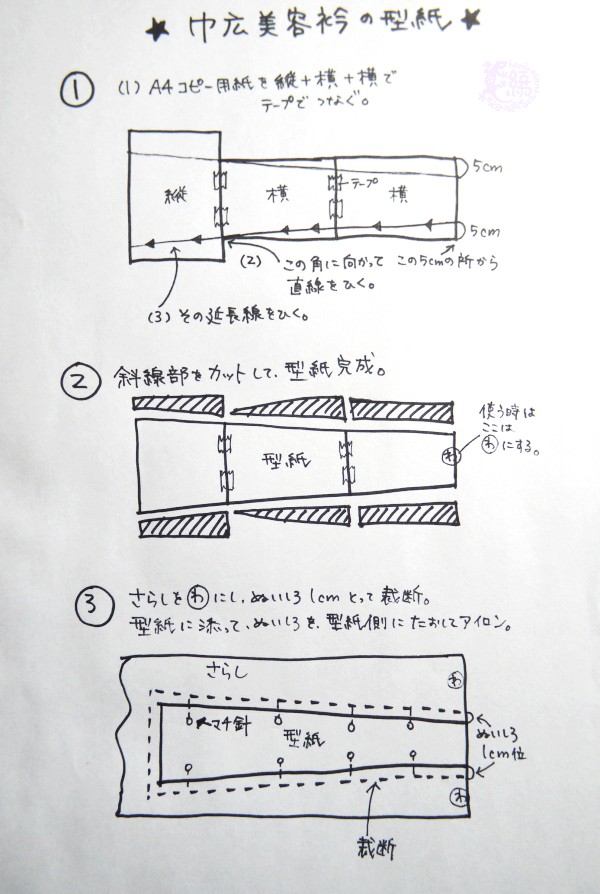 ★ 巾広美容衿の型紙 ★
① (1) A4コピー用紙を縦+横+横で
テープでつなぐ。
縦
横
テープ
横
5cm
5cm
(2) この角に向かって
直線をひく。
この5cmの所から
(3) その延長線をひく。
② 斜線部をカットして、型紙完成。
型紙
わ
使う時は
ここは
わにする。
③ さらしをわにし、ぬいしろ1cmとって裁断。
型紙に添って、ぬいしろを、型紙側にたおしてアイロン。
さらし
わ
マチ針
型紙
ぬいしろ
1cm位
わ
裁断